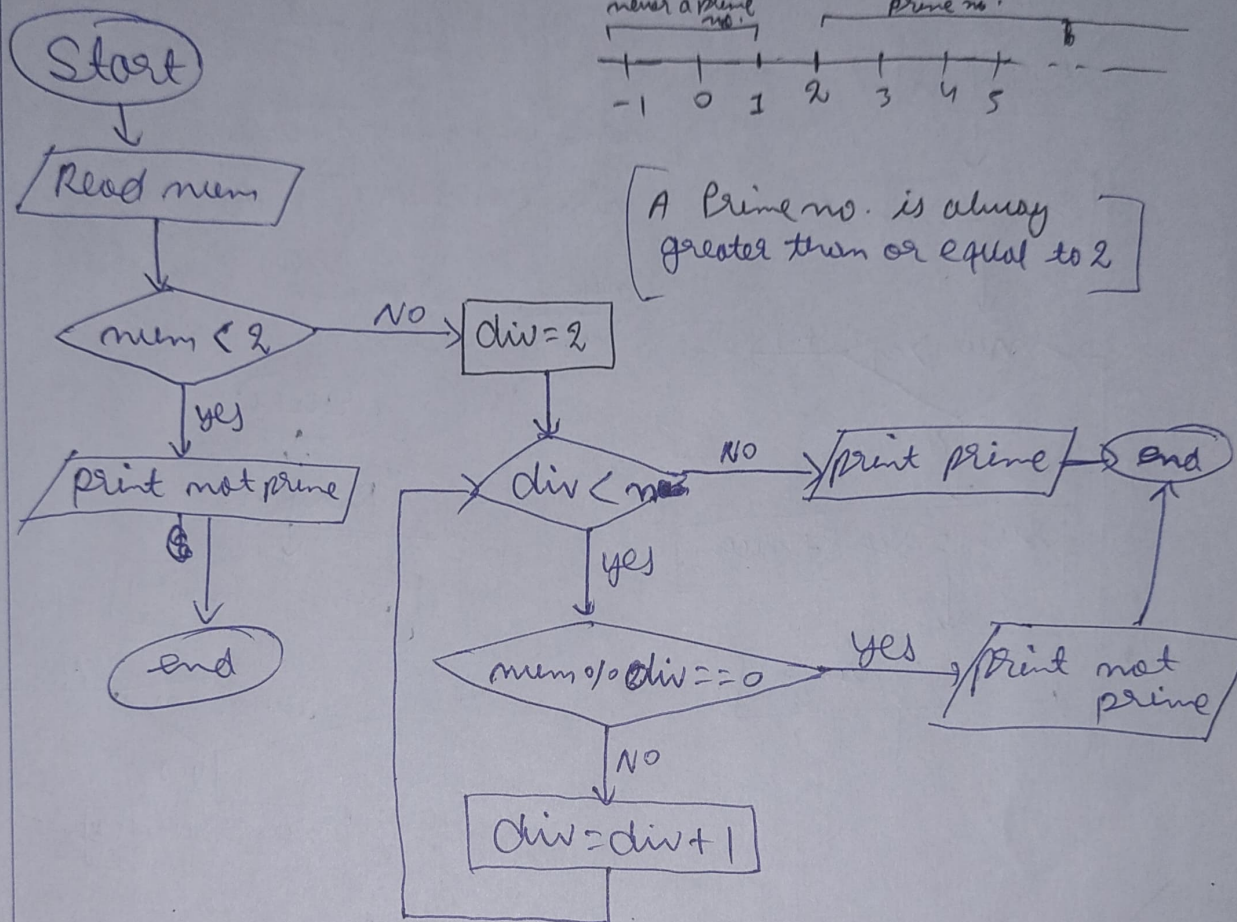 never a prime
no.
prime no.
-1 0 1 2 3 4 5
Start
Read num
A Prime no. is alway
greater than or equal to 2
num < 2
NO
div=2
yes
print not prime
end
div < n
NO
print prime
end
yes
num%div==0
yes
print not
prime
NO
div=div+1